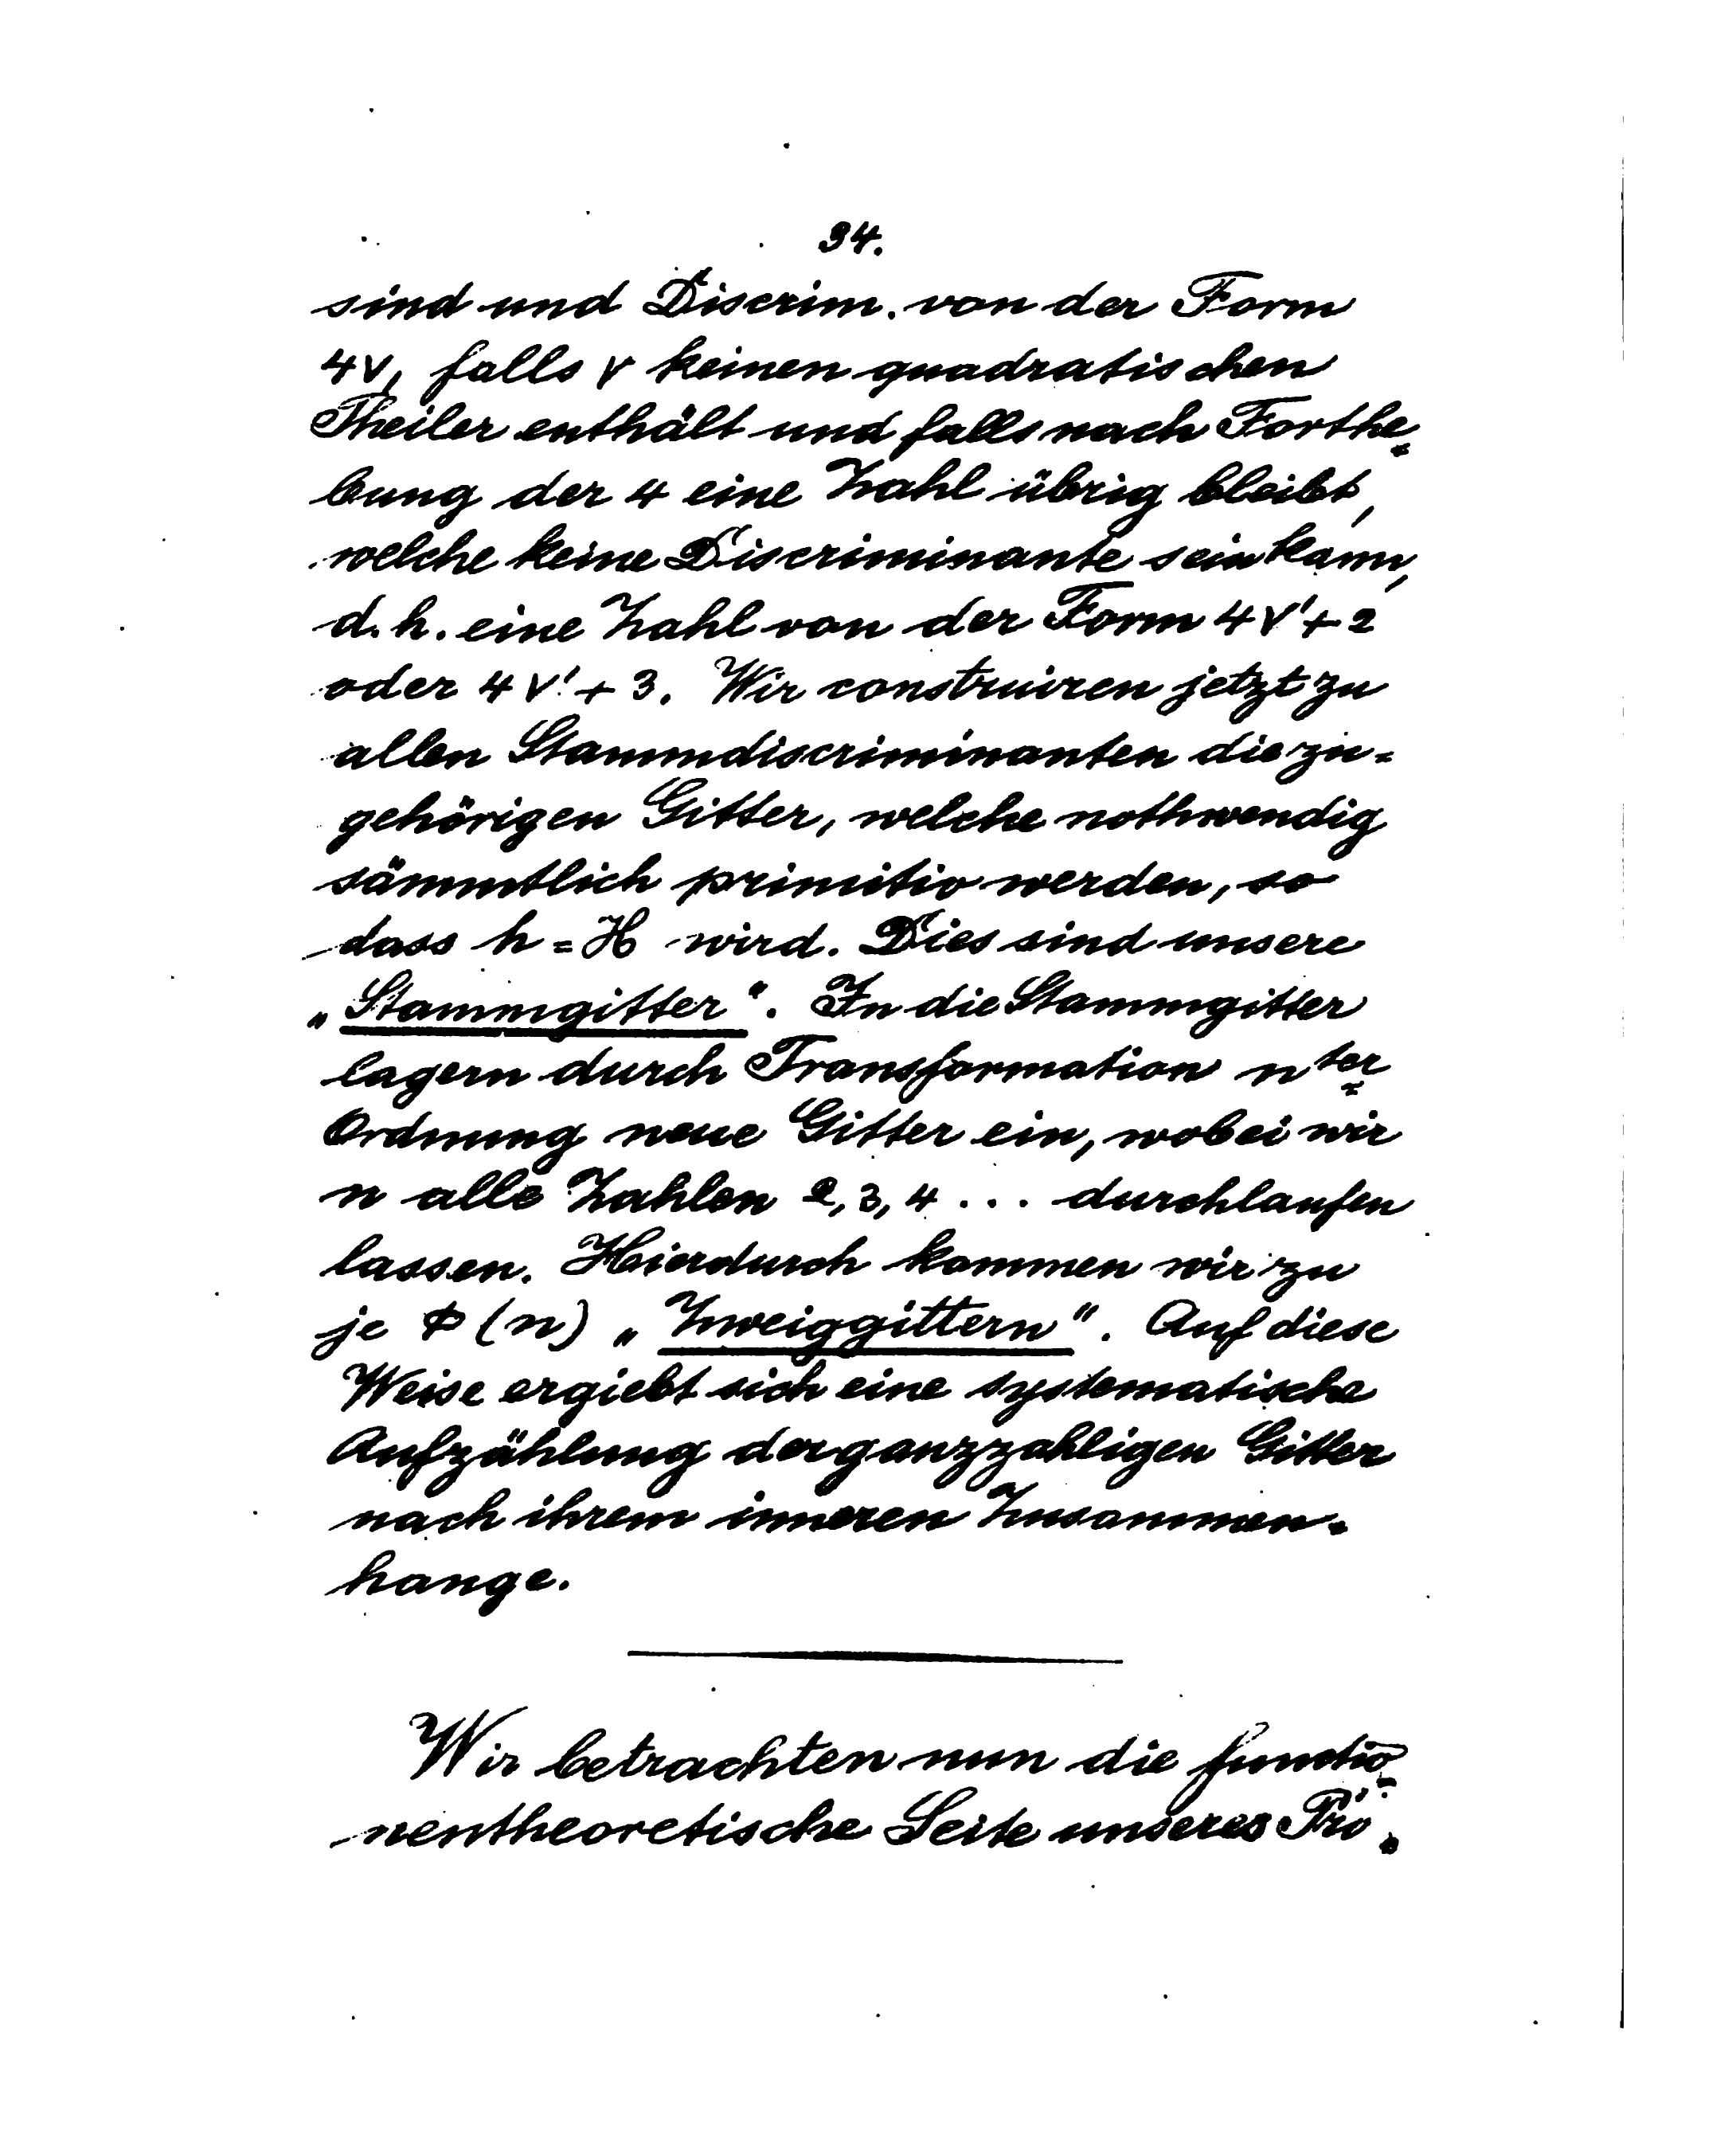 34.
sind und Discrim. von der Form
4ν, falls ν keinen quadratischen
Theiler enthält und falls nach Forthe=
bung der 4 eine Zahl übrig bleibt,
welche keine Discriminante sein kann,
d. h. eine Zahl von der Form 4ν'+2
oder 4ν'+3. Wir construiren jetzt zu
allen Stammdiscriminanten die zu=
gehörigen Gitter, welche nothwendig
sämmtlich primitiv werden, so
dass h = H wird. Dies sind unsere
„Stammgitter“. In die Stammgitter
lagern durch Transformation n ter
Ordnung neue Gitter ein, wobei wir
n alle Zahlen 2, 3, 4 ... durchlaufen
lassen. Hierdurch kommen wir zu
je Φ (n) „Zweiggittern“. Auf diese
Weise ergiebt sich eine systematische
Aufzählung der ganzzahligen Gitter
nach ihrem inneren Zusammen=
hange.
Wir betrachten nun die functio=
nentheoretische Seite unseres Pro=